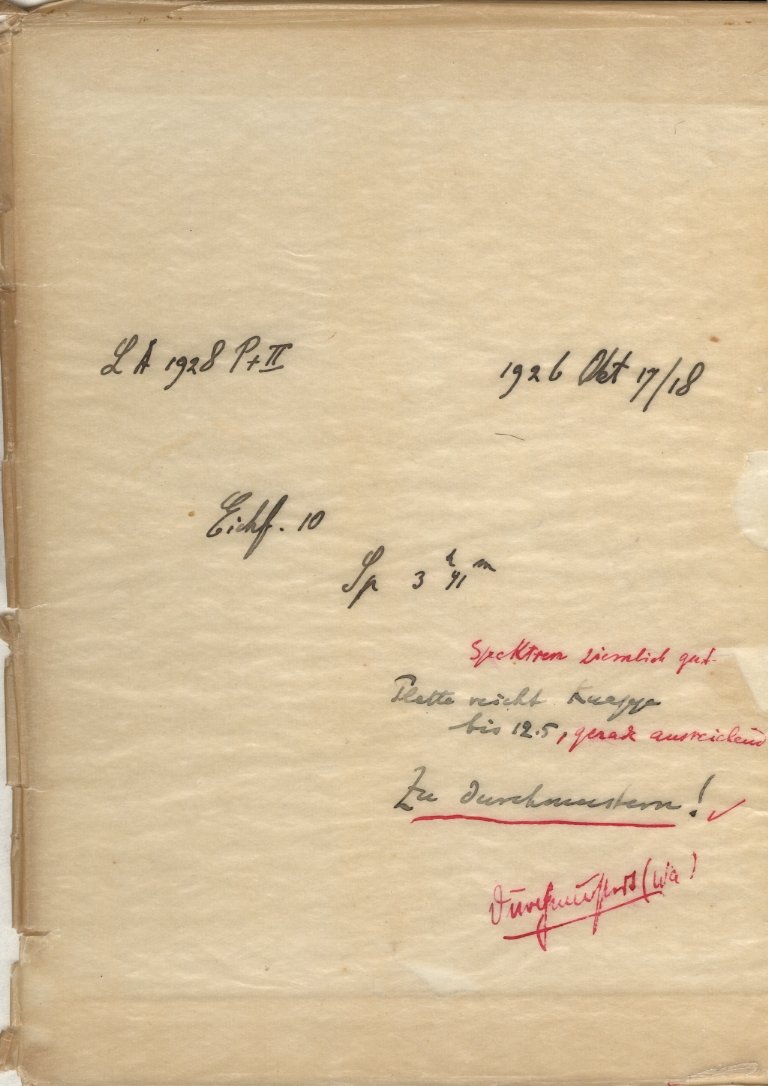 LA 1928 P+II
1926 Okt 17/18
Eichf. 10
Sp 3ʰ 41ᵐ
Spektren ziemlich gut.
Platte reicht knapp
bis 12.5, gerade ausreichend
Zu durchmustern! ✓
Durchmustert (Wa)